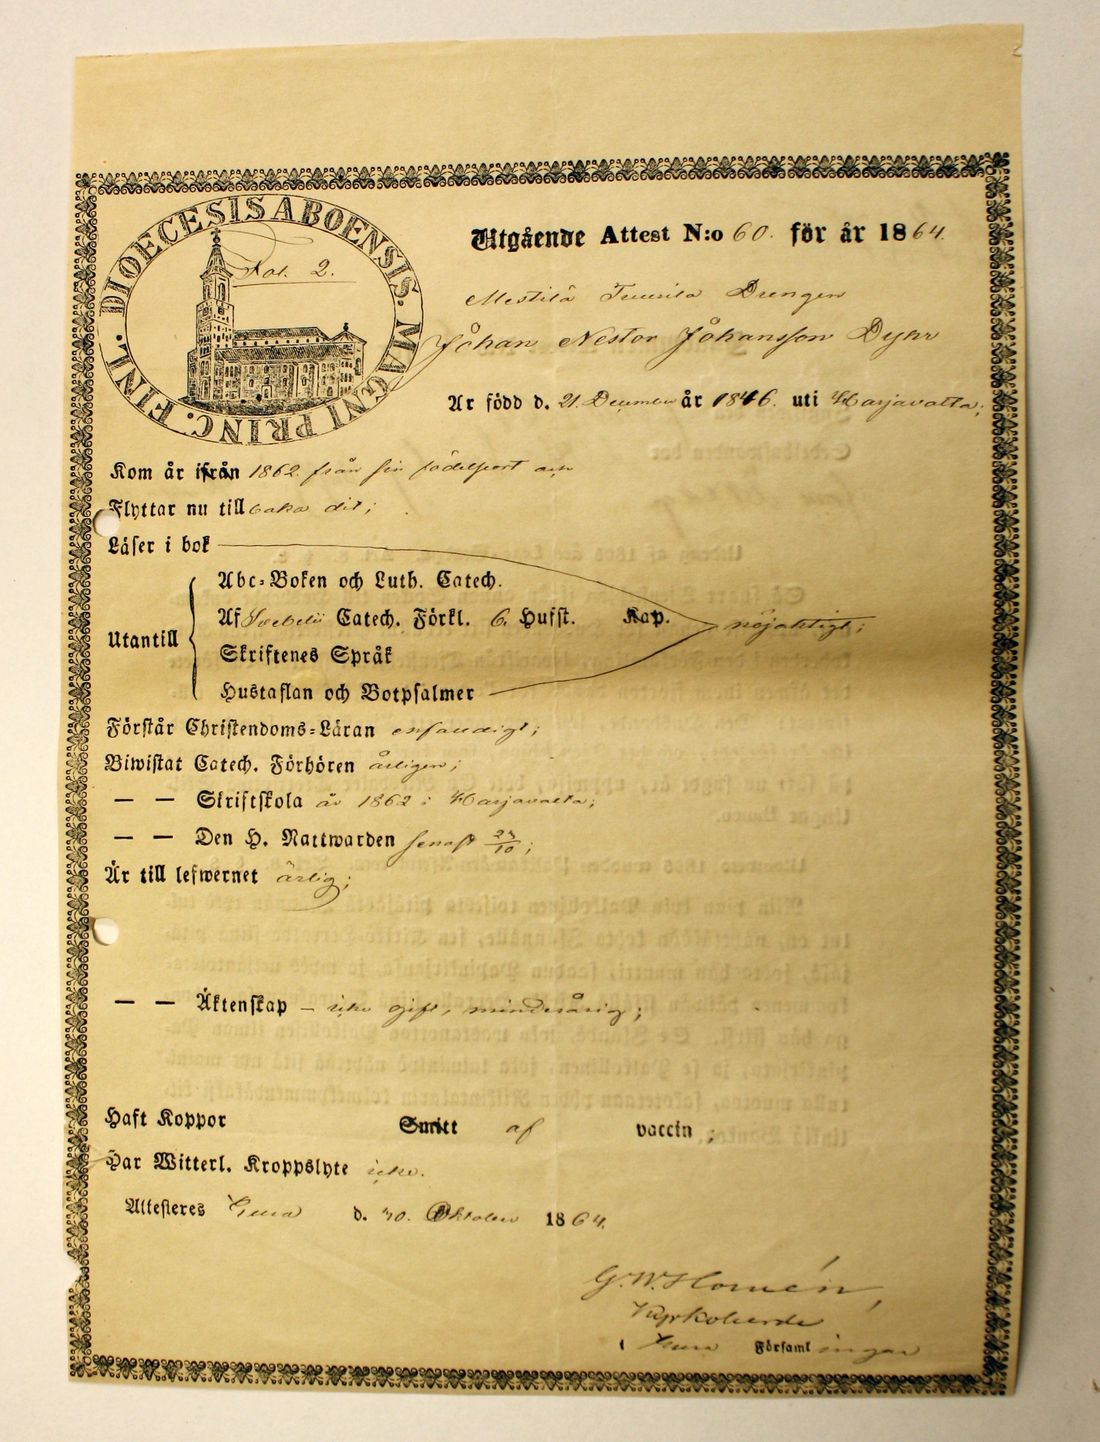 DIOECESIS ABOENSIS. MAGNI PRINC. FINL.
Fol. 2.
Utgående Attest N:o 60. för år 1864.
Mestilä Tuurila Drengen
Johan Nestor Johansson Dyhr
Är född d. 21. December år 1846. uti Harjavalta;
Kom år ifrån 1862. från sin födelseort och
Flyttar nu till baka dit;
Läser i bok
Utantill
Abc-Boken och Luth. Catech.
Af Svebelii Catech. Förkl. 6. Hufst. Kap. nöjaktigt;
Skriftenes Språk
Hustaflan och Botpsalmer
Förstår Christendoms-Läran enfaldigt;
Biwistat Catech. Förhören årligen;
— — Skriftskola år 1862 i Harjavalta;
— — Den H. Nattwarden senast 23/10;
Är till lefwernet ärlig;
— — Äktenskap – icke gift, minderårig;
Haft Koppor Smitt af vaccin;
Har Witterl. Kroppslyte icke.
Attesteres Eura d. 30. Oktober 1864.
G. W. Homén,
Kyrkoherde
i Eura Församlingar